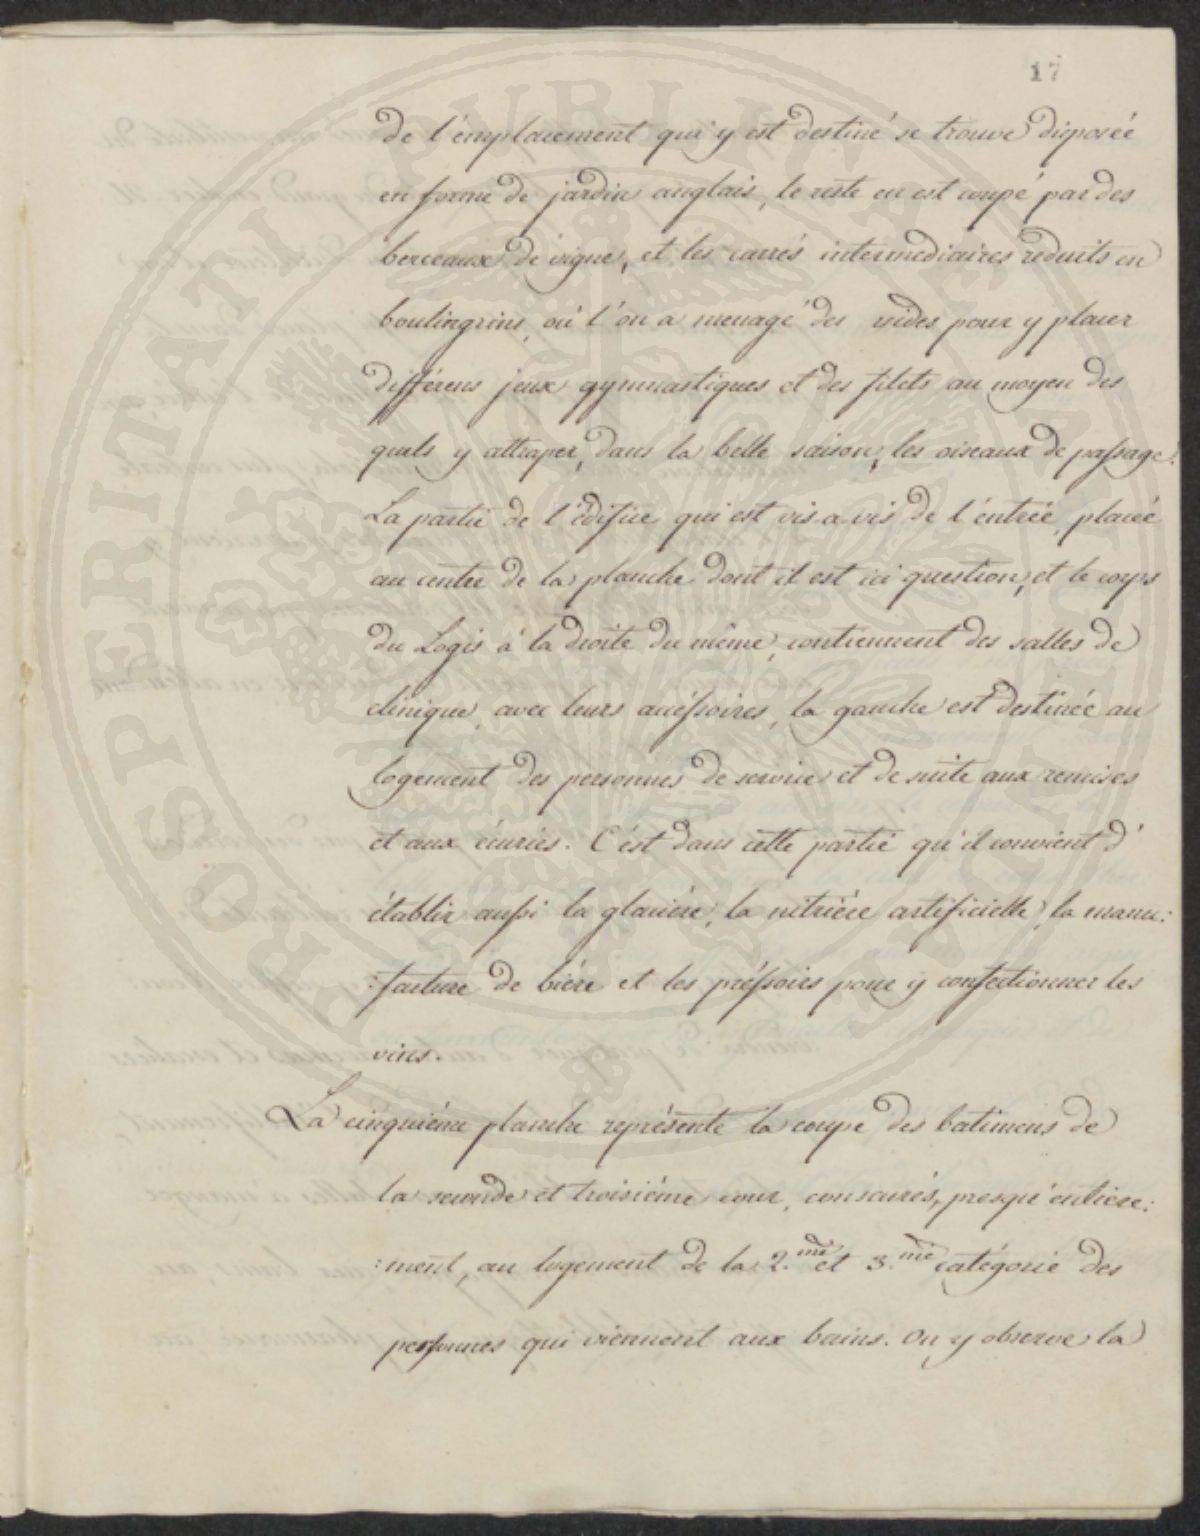 17
de l'émplacement qui y est destiné se trouve disposée
en forme de jardin anglais, le reste en est coupé par des
berceaux de vigne, et les carrés intermediaires reduits en
boulingrins, où l'on a menagé des vides pour y placer
différens jeux gymnastiques et des filets au moyen des
quels y attraper, dans la belle saison, les oiseaux de passage.
La partie de l'édifice qui est vis a vis de l'entrée, placée
au centre de la planche dont il est ici question, et le corps
du Logis à la droite du même, contiennent des salles de
clinique, avec leurs accéssoires, la gauche est destinée au
logement des personnes de service et de suite aux remises
et aux écuries. C'ést dans cette partie qu'il convient d'
établir aussi la glacière, la nitrière artificielle, la manu:
:facture de bière et les préssoirs pour y confectionner les
vins.
La cinquième planche représente la coupe des batimens de
la seconde et troisième cour, consacrés, presqu'entiere:
:ment, au logement de la 2.me et 3.me catégorie des
personnes qui viennent aux bains. On y observe la
PROSPERITATI PUBLICAE